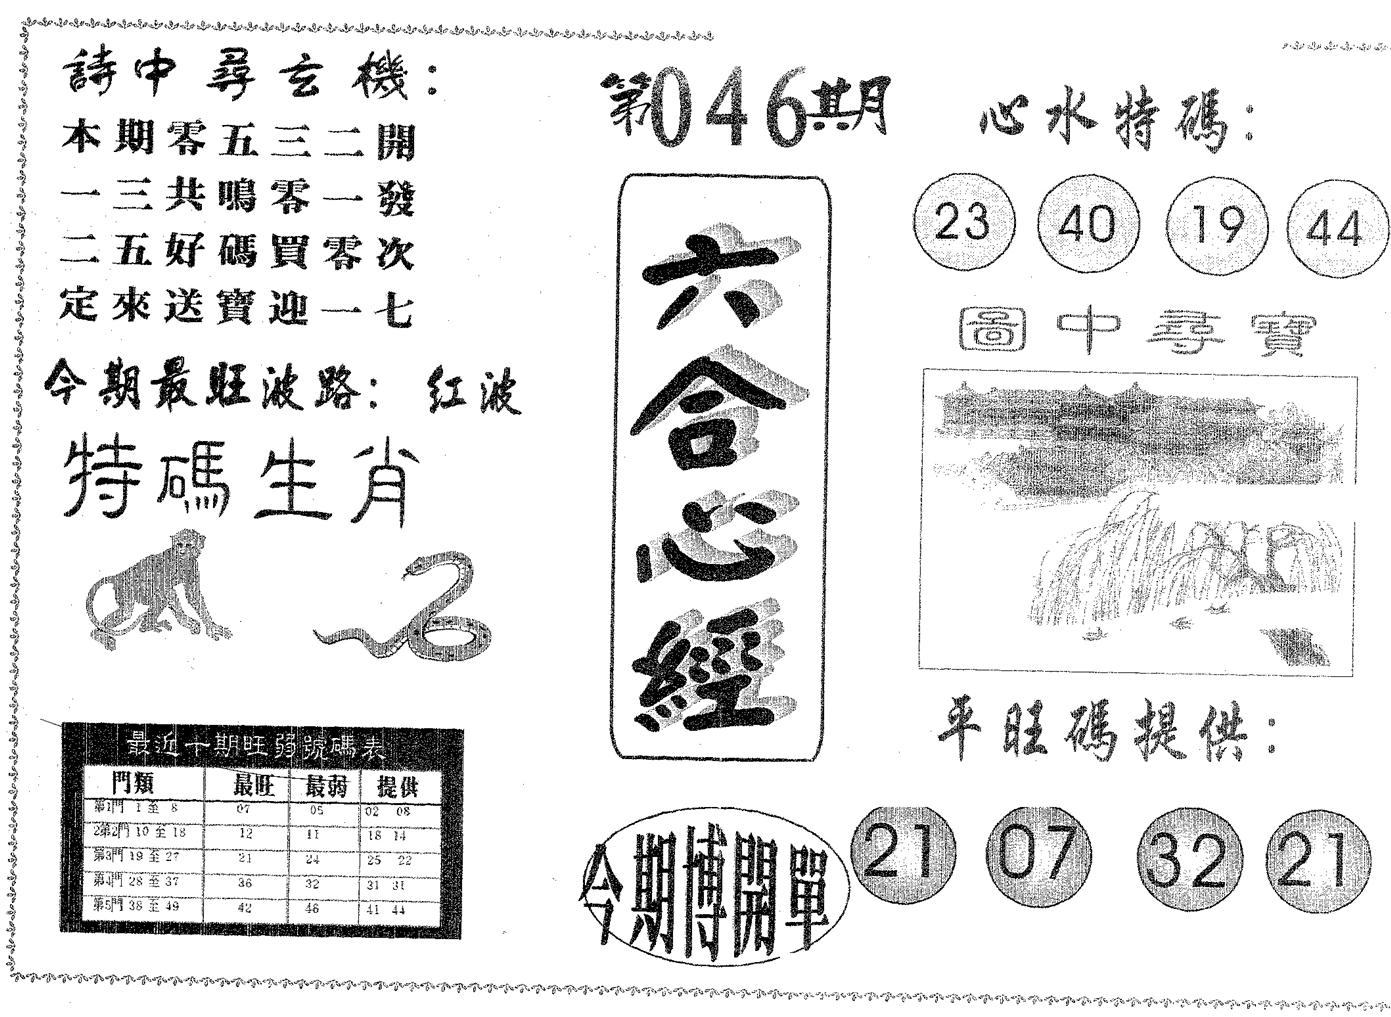 詩中尋玄機：
本期零五三二開
一三共鳴零一發
二五好碼買零次
定來送寶迎一七
今期最旺波路： 红波
特碼生肖
最近十期旺弱號碼表
門類 最旺 最弱 提供
第1門 1 至 8 07 05 02 08
2第2門 10 至 18 12 11 18 14
第3門 19 至 27 21 24 25 22
第4門 28 至 37 36 32 31 31
第5門 38 至 49 42 46 41 44
第046期
六合心經
今期博開單
心水特碼：
23 40 19 44
圖中尋寶
平旺碼提供：
21 07 32 21